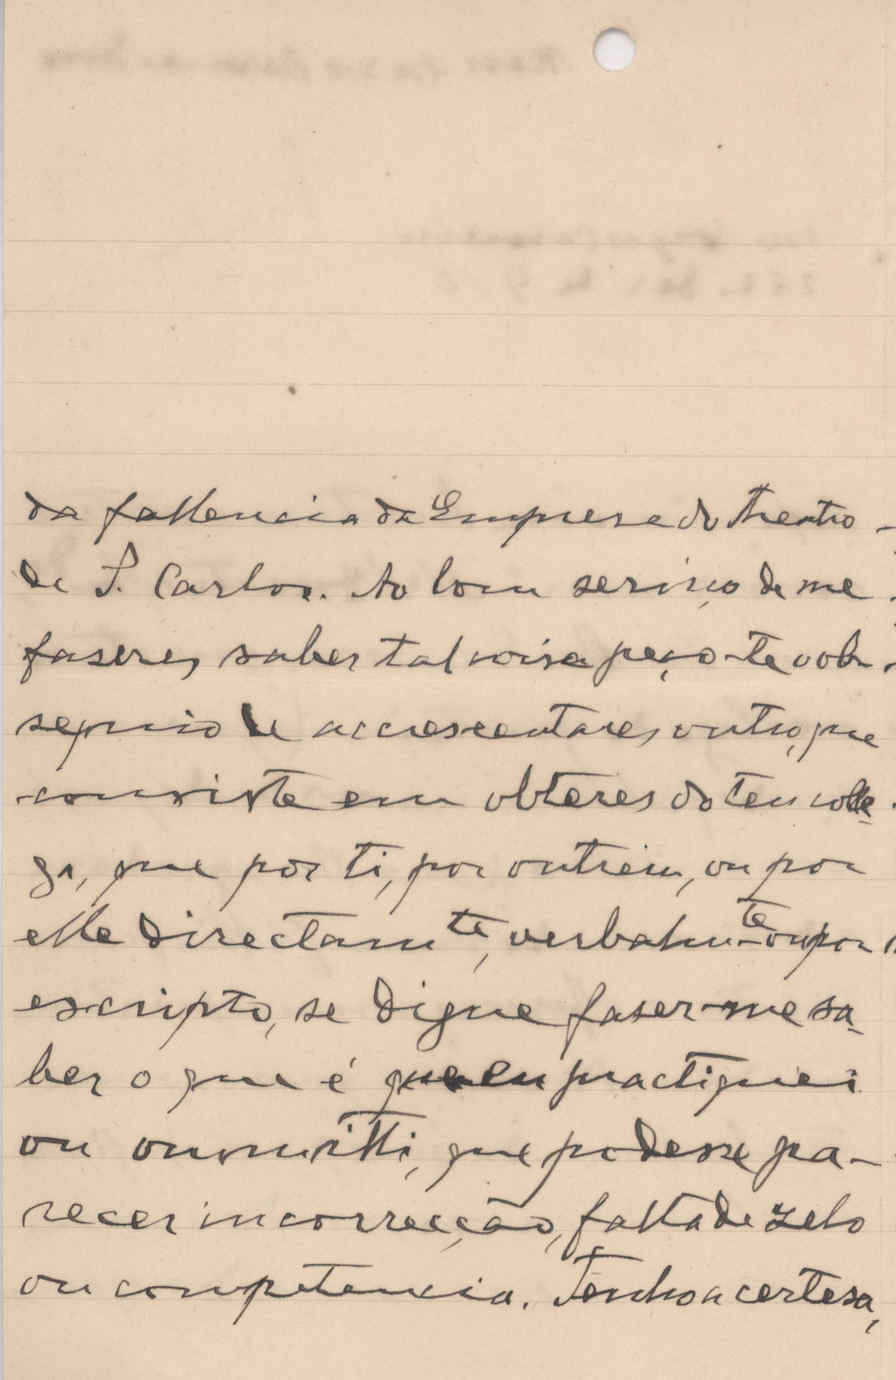 da fallencia da Empresa do Theatro
de S. Carlos. Ao bom serviço de me
fazeres saber tal coisa peço-te o ob-
sequio de accrescentares outro, que
consiste em obteres do teu colle-
ga, que por ti, por outrem, ou por
elle directamte, verbalmte ou por
escripto, se digne faser-me sa-
ber o que é que eu practiquei
ou ommitti, que podesse pa-
recer incorrecção, falta de zelo
ou competencia. Tenho a certesa,